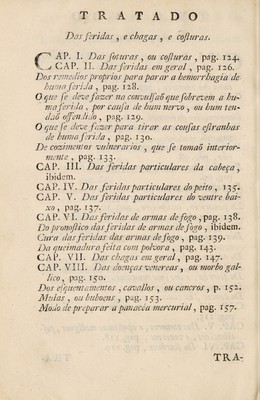 TRATADO
Das feridas, e chagas, e costuras.
CAP. I. Das soturas, ou costuras, pag. 124.
CAP. II. Das feridas em geral, pag. 126.
Dos remedios proprios para parar a hemorrhagia de
huma ferida, pag. 128.
O que se deve fazer na convulsaõ que sobrevem a hu-
ma ferida, por causa de hum nervo, ou hum ten-
daõ offendido, pag. 129.
O que se deve fazer para tirar as cousas estranbas
de huma ferida, pag. 130.
De cozimentos vulnerarios, que se tomaõ interior-
mente, pag. 133.
CAP. III. Das feridas particulares da cabeça,
ibidem.
CAP. IV. Das feridas particulares do peito, 135.
CAP. V. Das feridas particulares do ventre bai-
xo, pag. 137.
CAP. VI. Das feridas de armas de fogo, pag. 138.
Do pronostico das feridas de armas de fogo, ibidem.
Cura das feridas das armas de fogo, pag. 139.
Da queimadura feita com polvora, pag. 143.
CAP. VII. Das chagas em geral, pag. 147.
CAP. VIII. Das doenças venereas, ou morbo gal-
lico, pag. 150.
Dos esquentamentos, cavallos, ou cancros, p. 152.
Mulas, ou buboens, pag. 153.
Modo de preparar a panacéa mercurial, pag. 157.
TRA-